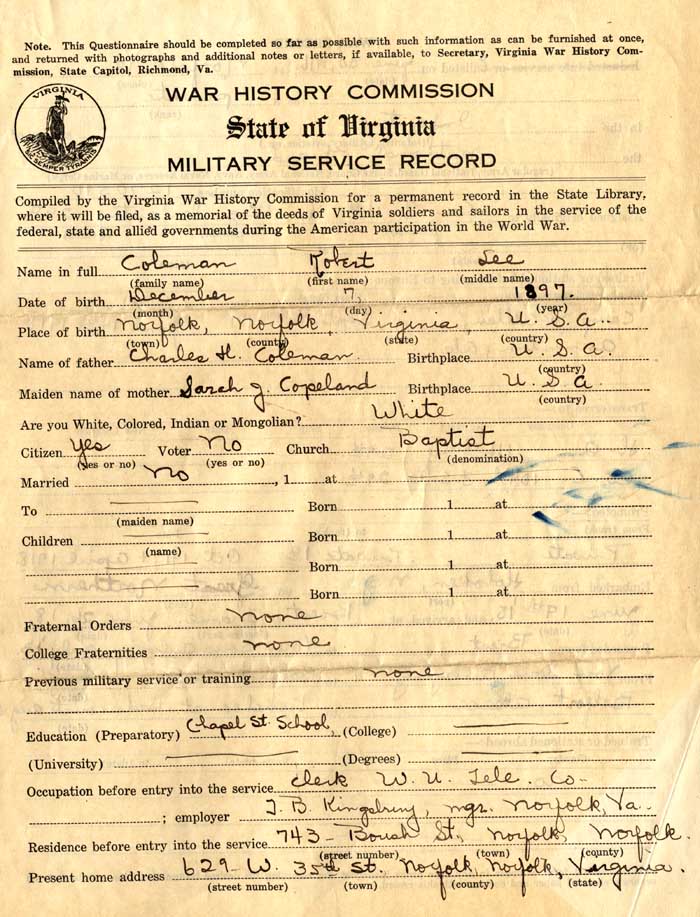 Note. This Questionnaire should be completed so far as possible with such information as can be furnished at once,
and returned with photographs and additional notes or letters, if available, to Secretary, Virginia War History Com-
mission, State Capitol, Richmond, Va.
VIRGINIA
SIC SEMPER TYRANNIS
WAR HISTORY COMMISSION
State of Virginia
MILITARY SERVICE RECORD
Compiled by the Virginia War History Commission for a permanent record in the State Library,
where it will be filed, as a memorial of the deeds of Virginia soldiers and sailors in the service of the
federal, state and allied governments during the American participation in the World War.
Name in full Coleman Robert Lee
(family name) (first name) (middle name)
Date of birth December 7, 1897.
(month) (day) (year)
Place of birth Norfolk, Norfolk, Virginia, U. S. A.
(town) (county) (state) (country)
Name of father Charles H. Coleman. Birthplace U. S. A.
(country)
Maiden name of mother Sarah J. Copeland Birthplace U. S. A.
(country)
Are you White, Colored, Indian or Mongolian? White
Citizen Yes Voter No Church Baptist
(yes or no) (yes or no) (denomination)
Married No, 1 at
To Born 1 at
(maiden name)
Children Born 1 at
(name)
Born 1 at
Born 1 at
Fraternal Orders none
College Fraternities none
Previous military service or training none
Education (Preparatory) Chapel St. School, (College)
(University) (Degrees)
Occupation before entry into the service clerk W. U. Tele. Co.
; employer J. B. Kingsbury, mgr. Norfolk, Va.
Residence before entry into the service 743 - Boush St., Norfolk, Norfolk.
(street number) (town) (county)
Present home address 629 - W. 35th St. Norfolk, Norfolk, Virginia.
(street number) (town) (county) (state)